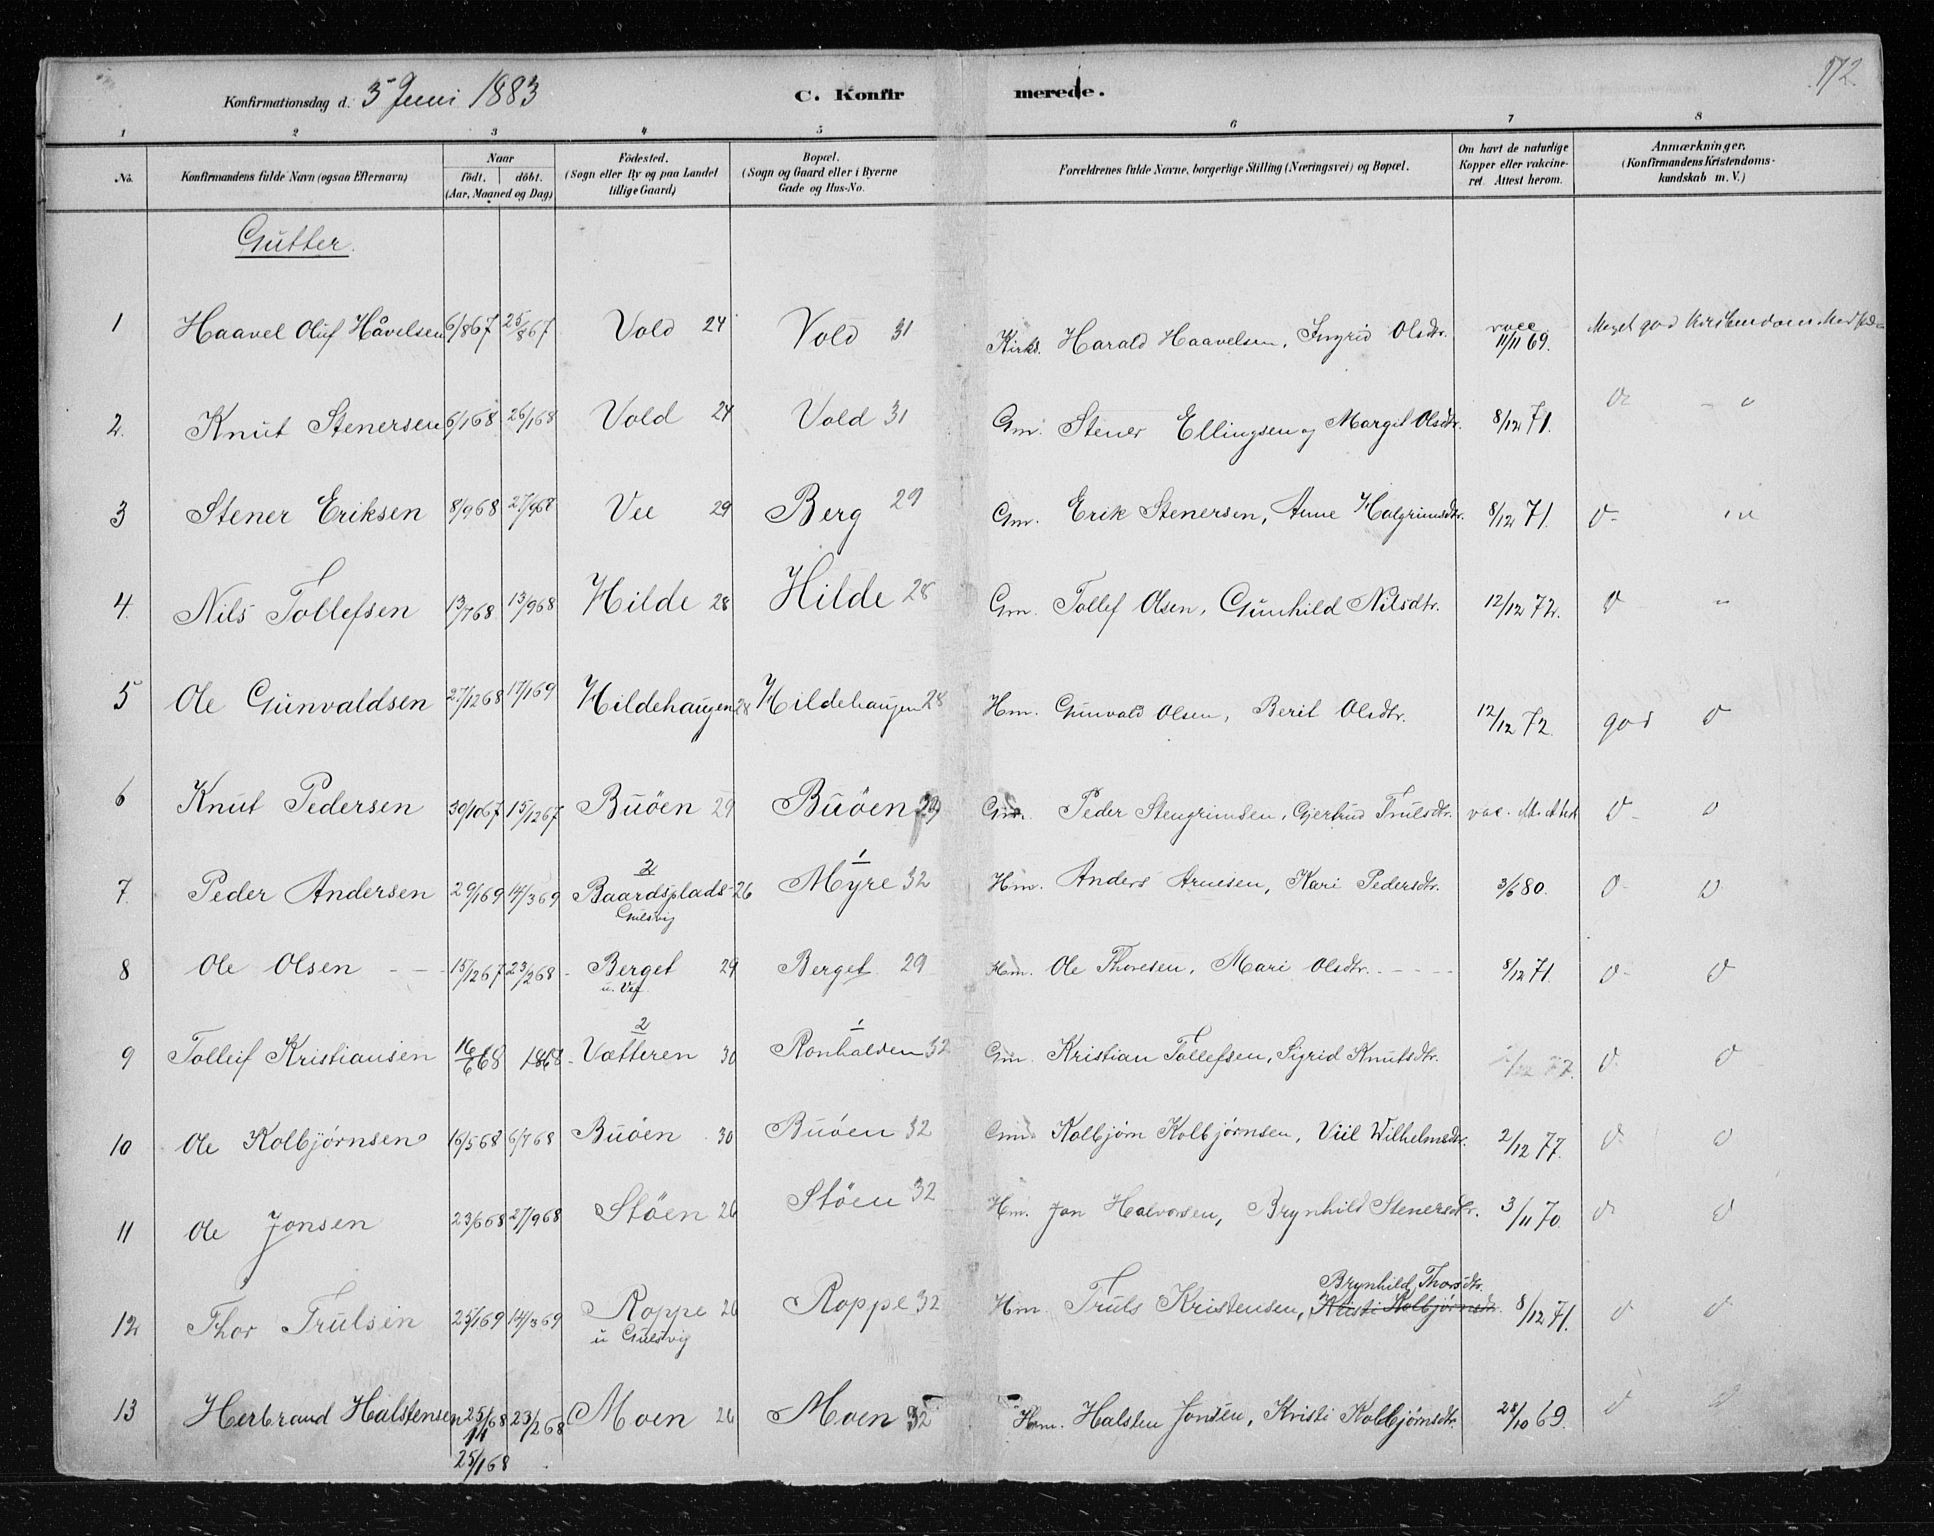 172
Konfirmationsdag d. 3 Juni 1883 C. Konfirmerede.
1 2 3 4 5 6 7 8
No. Konfirmandens fulde Navn (ogsaa Efternavn) Naar født. døbt. (Aar, Maaned og Dag) Fødested. (Sogn eller By og paa Landet tillige Gaard) Bopæl. (Sogn og Gaard eller i Byerne Gade og Hus-No. Forældrenes fulde Navne, borgerlige Stilling (Næringsvei) og Bopæl. Om havt de naturlige Kopper eller vakcineret. Attest herom. Anmærkninger. (Konfirmandens Kristendomskundskab m. V.)
Gutter.
1 Haavel Oluf Håvelsen 6/867 25/867 Vold 24 Vold 31 Kirks. Harald Haavelsen, Ingrid Olsdtr. vacc 11/11 69. Meget god Kristendoms
2. Knut Stenersen 6/168 26/168 Vold 24 Vold 31 Gm. Stener Ellingsen og Margit Olsdtr. 8/12 71.
3 Stener Eriksen 8/968 27/968 Vee 29 Berg 29 Gm. Erik Stenersen, Anne Halgrimsdtr. 8/12 71.
4. Nils Tollefsen 13/768 13/968 Hilde 28 Hilde 28 Gm. Tollef Olsen, Gunhild Nilsdtr. 12/12 72.
5 Ole Gunvaldsen 27/1268 17/169 Hildehaugen 28 Hildehaugen 28 Hm. Gunvald Olsen, Berit Olsdtr. 12/12 72. god
6 Knut Pedersen 30/1067 15/1267 Buøen 29 Buøen 29 Gm. Peder Stengrimsen, Gjertrud Trulsdtr. vac.
7. Peder Andersen 29/169 14/369 2 Baardsplads 26 Gulsvig 1 Myre 32 Hm. Anders Arnesen, Kari Pedersdtr. 3/6 80.
8 Ole Olsen 15/1267 23/268 Berget 29 u. Vef Berget 29 Hm. Ole Thoresen, Mari Olsdtr. 8/12 71.
9 Tolleif Kristiansen 16/668 1868 2 Vætteren 30 1 Ronhalden 32 Gm. Kristian Tollefsen, Sigrid Knutsdtr. 2/12 77.
10 Ole Kolbjørnsen 16/568 6/768 Buøen 30 Buøen 32 Gmd Kolbjørn Kolbjørnsen, Viil Wilhelmsdtr. 2/12 77.
11 Ole Jonsen 23/668 27/968 Støen 26 Støen 32 Hm. Jon Halvorsen, Brynhild Stenersdtr. 3/11 70.
12 Thor Trulsen 25/169 14/369 Roppe 26 u Gulsvig Roppe 32 Hm. Truls Kristensen, Brynhild Thorsdtr. Kristi Kolbjørnsdtr. 8/12 71.
13 Herbrand Halstensen 25/168 23/268 Moen 26 Moen 32 Hm. Halsten Jonsen, Kristi Kolbjørnsdtr. 28/10 69.
25/168